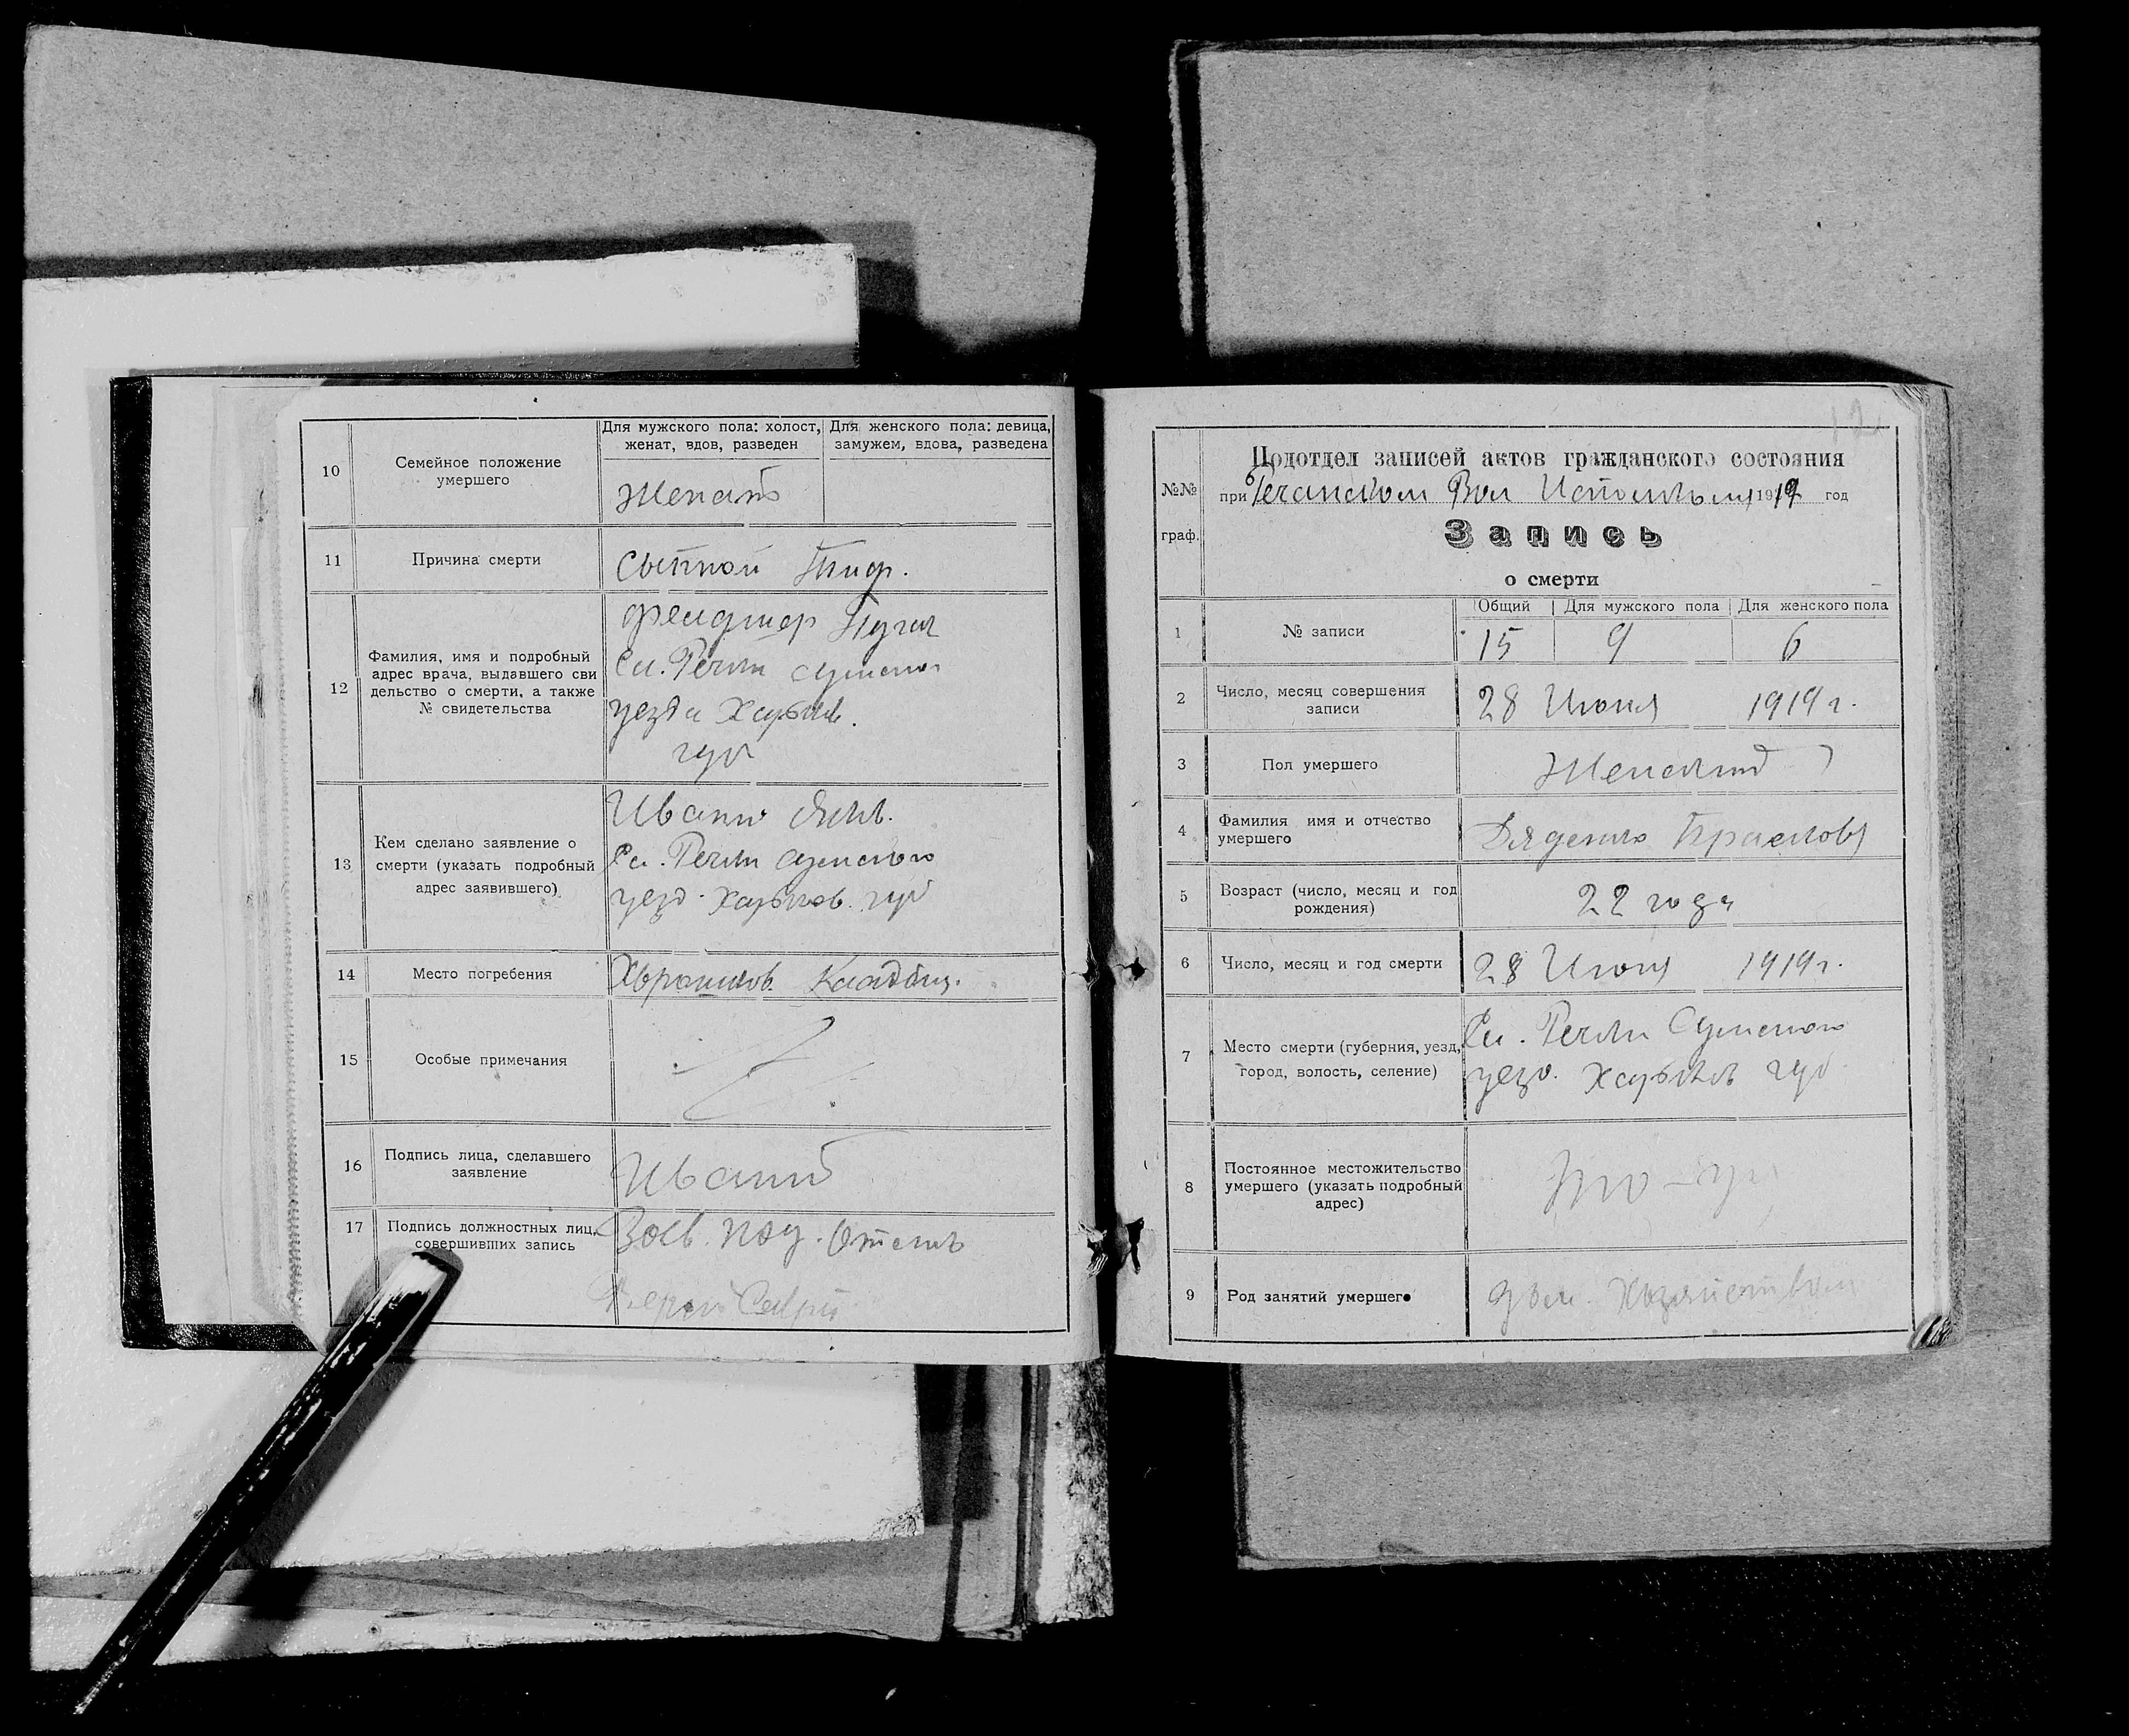 10
Семейное положение
умершего
Для мужского пола: холост,
женат, вдов, разведен
Для женского пола: девица,
замужем, вдова, разведена
Женатъ
11
Причина смерти
Сыпной Тиф.
12
Фамилия, имя и подробный
адрес врача, выдавшего сви
дельство о смерти, а также
№ свидетельства
Сл. Речки Сумского
уезда Харьков.
губ
13
Кем сделано заявление о
смерти (указать подробный
адрес заявившего)
Иванъ
Сл. Речки Сумского
уезд. Харьков. губ
14
Место погребения
Кладбищ.
15
Особые примечания
16
Подпись лица, сделавшего
заявление
17
Подпись должностных лиц,
совершивших запись
Зав. под. Отдель
12
№№
граф.
Подотдел записей актов гражданского состояния
при Речанском Вол Исполкому 1919 год
Запись
о смерти
1
№ записи
Общий
Для мужского пола
Для женского пола
15
9
6
2
Число, месяц совершения
записи
28 Июня 1919 г.
3
Пол умершего
Женский
4
Фамилия имя и отчество
умершего
5
Возраст (число, месяц и год
рождения)
22 года
6
Число, месяц и год смерти
28 Июня 1919 г.
7
Место смерти (губерния, уезд,
город, волость, селение)
Сл. Речки Сумского
уезд. Харьков губ
8
Постоянное местожительство
умершего (указать подробный
адрес)
9
Род занятий умершего
Хозяйством